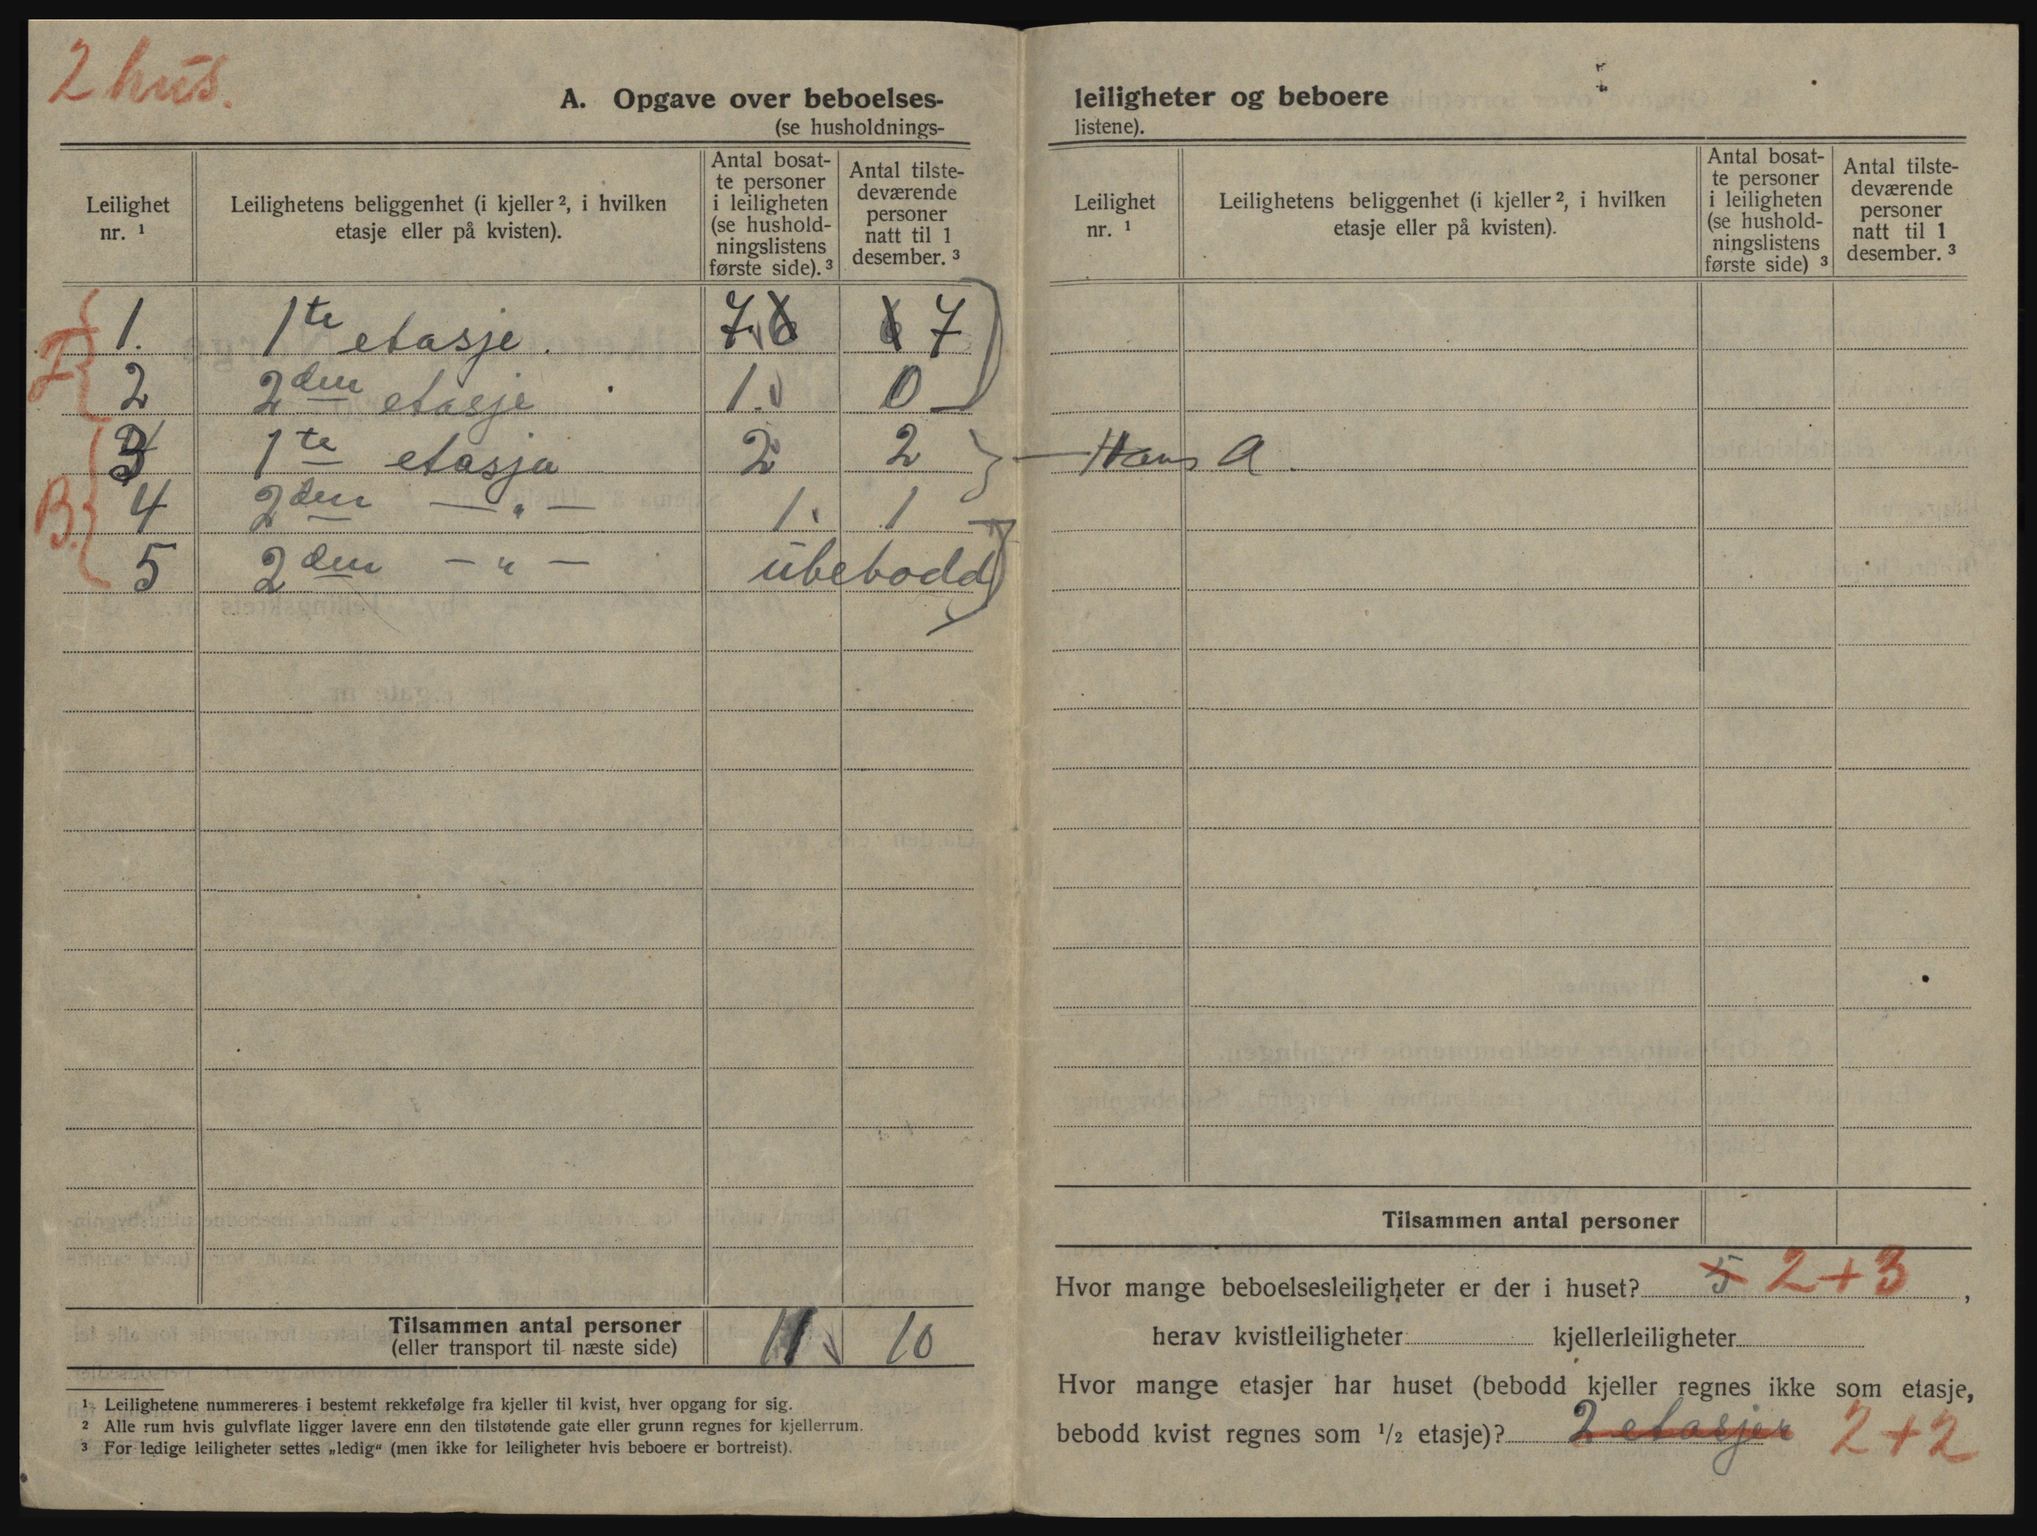 2 hus.
A. Opgave over beboelses-
(se husholdnings-
Leilighet nr. ¹
Leilighetens beliggenhet (i kjeller ², i hvilken etasje eller på kvisten).
Antal bosat-
te personer
i leiligheten
(se hushold-
ningslistens
første side). ³
Antal tilste-
deværende
personer
natt til 1
desember. ³
1. 1te etasje. 7 6 6 7
2 2den etasje 1. 0
3 1te etasje 2 2
B. 4 2den — " — 1. 1
5 2den — " — übebodd
Tilsammen antal personer 11 10
(eller transport til næste side)
¹ Leilighetene nummereres i bestemt rekkefølge fra kjeller til kvist, hver opgang for sig.
² Alle rum hvis gulvflate ligger lavere enn den tilstøtende gate eller grunn regnes for kjellerrum.
³ For ledige leiligheter settes „ledig“ (men ikke for leiligheter hvis beboere er bortreist).
leiligheter og beboere
listene).
Leilighet nr. ¹
Leilighetens beliggenhet (i kjeller ², i hvilken etasje eller på kvisten).
Antal bosat-
te personer
i leiligheten
(se hushold-
ningslistens
første side) ³
Antal tilste-
deværende
personer
natt til 1
desember. ³
Hans A.
Tilsammen antal personer
Hvor mange beboelsesleiligheter er der i huset? 5 2+3 ,
herav kvistleiligheter kjellerleiligheter
Hvor mange etasjer har huset (bebodd kjeller regnes ikke som etasje,
bebodd kvist regnes som ½ etasje)? 2 etasjer 2+2